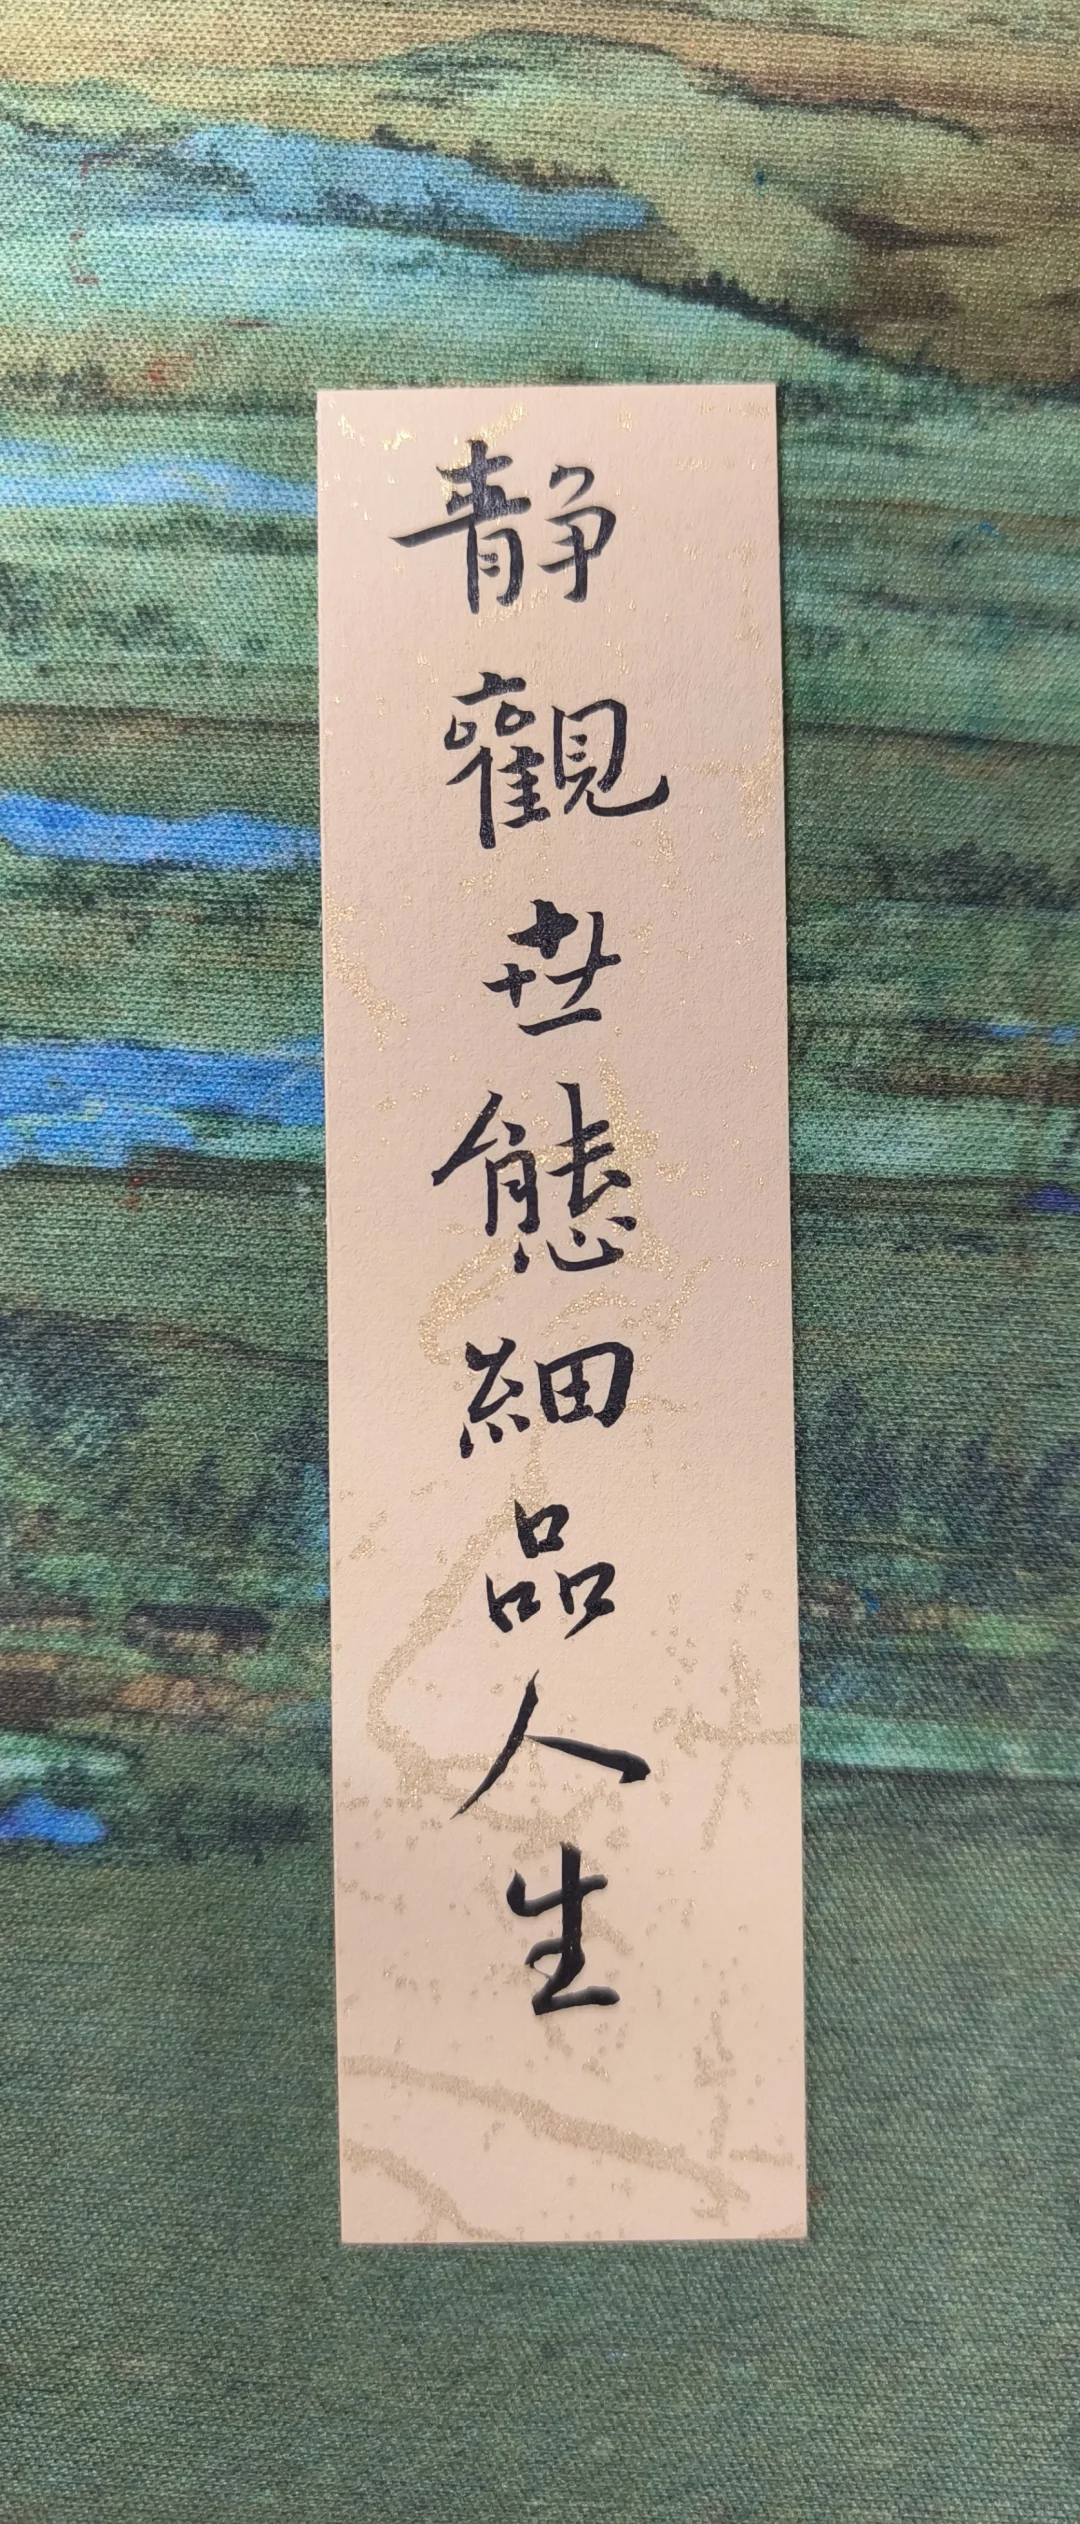 静觀世態細品人生